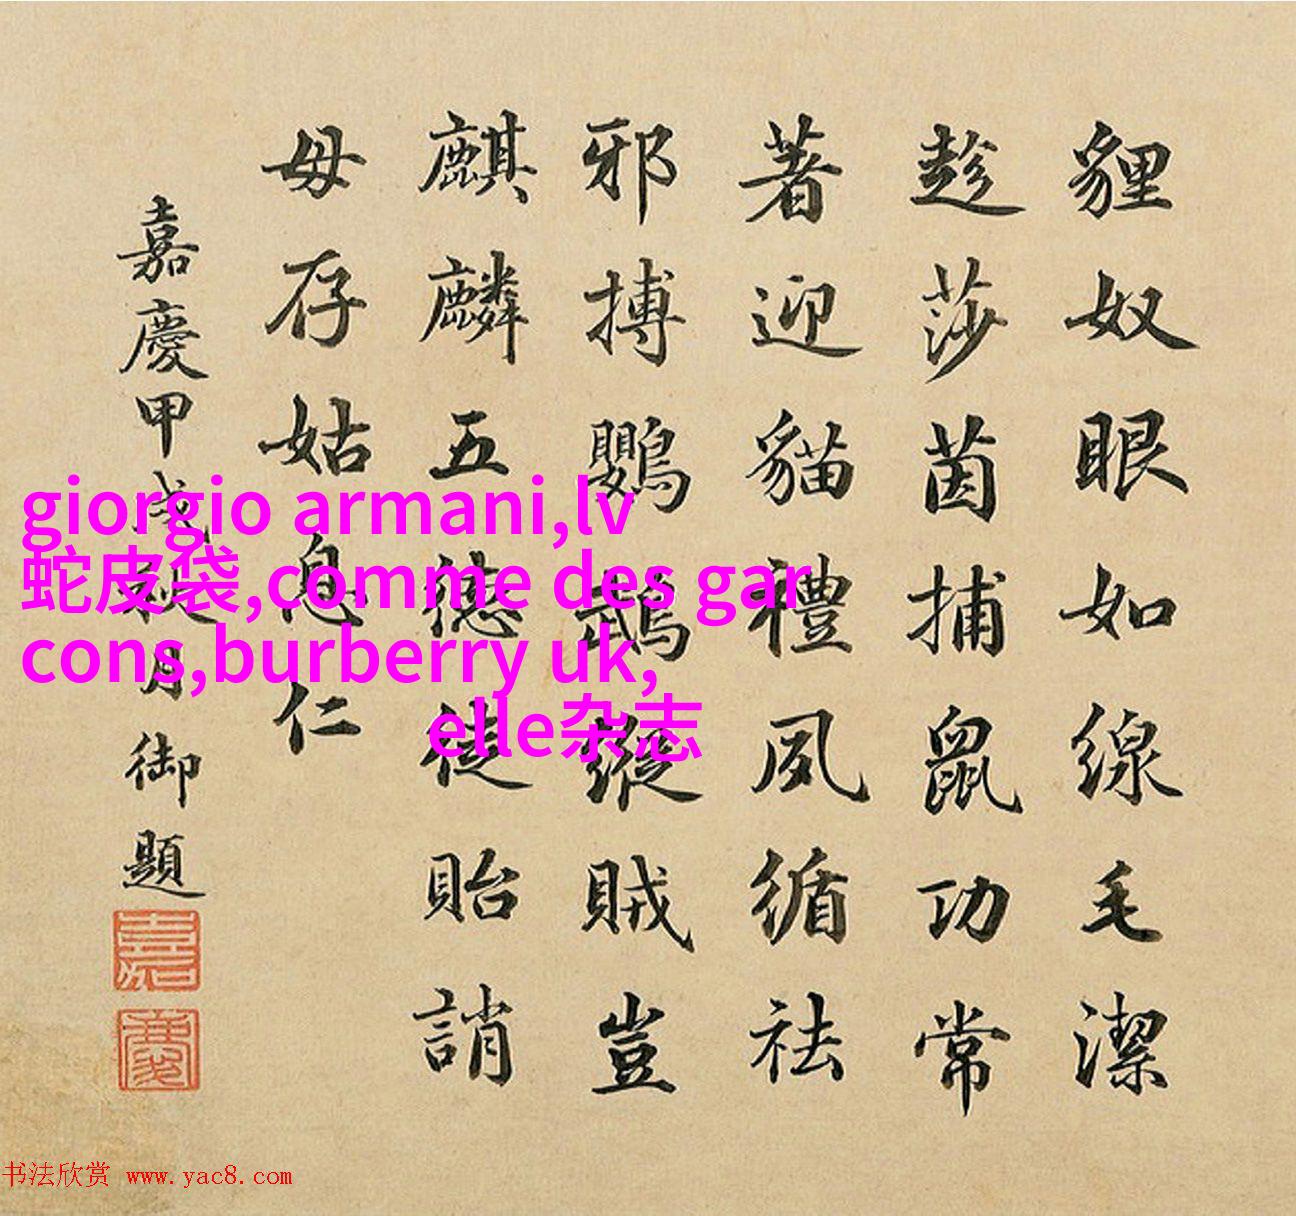 貍奴眼如線毛潔
趁莎茵捕鼠功常
著迎貓禮夙循祛
邪搏鸚鵡縱賊豈
麒麟五德徒貽誚
毋存姑息仁
嘉慶甲戌秋月御題
嘉
慶
giorgio armani,lv
蛇皮袋,comme des gar
cons,burberry uk,
elle杂志
书法欣赏 www.yac8.com